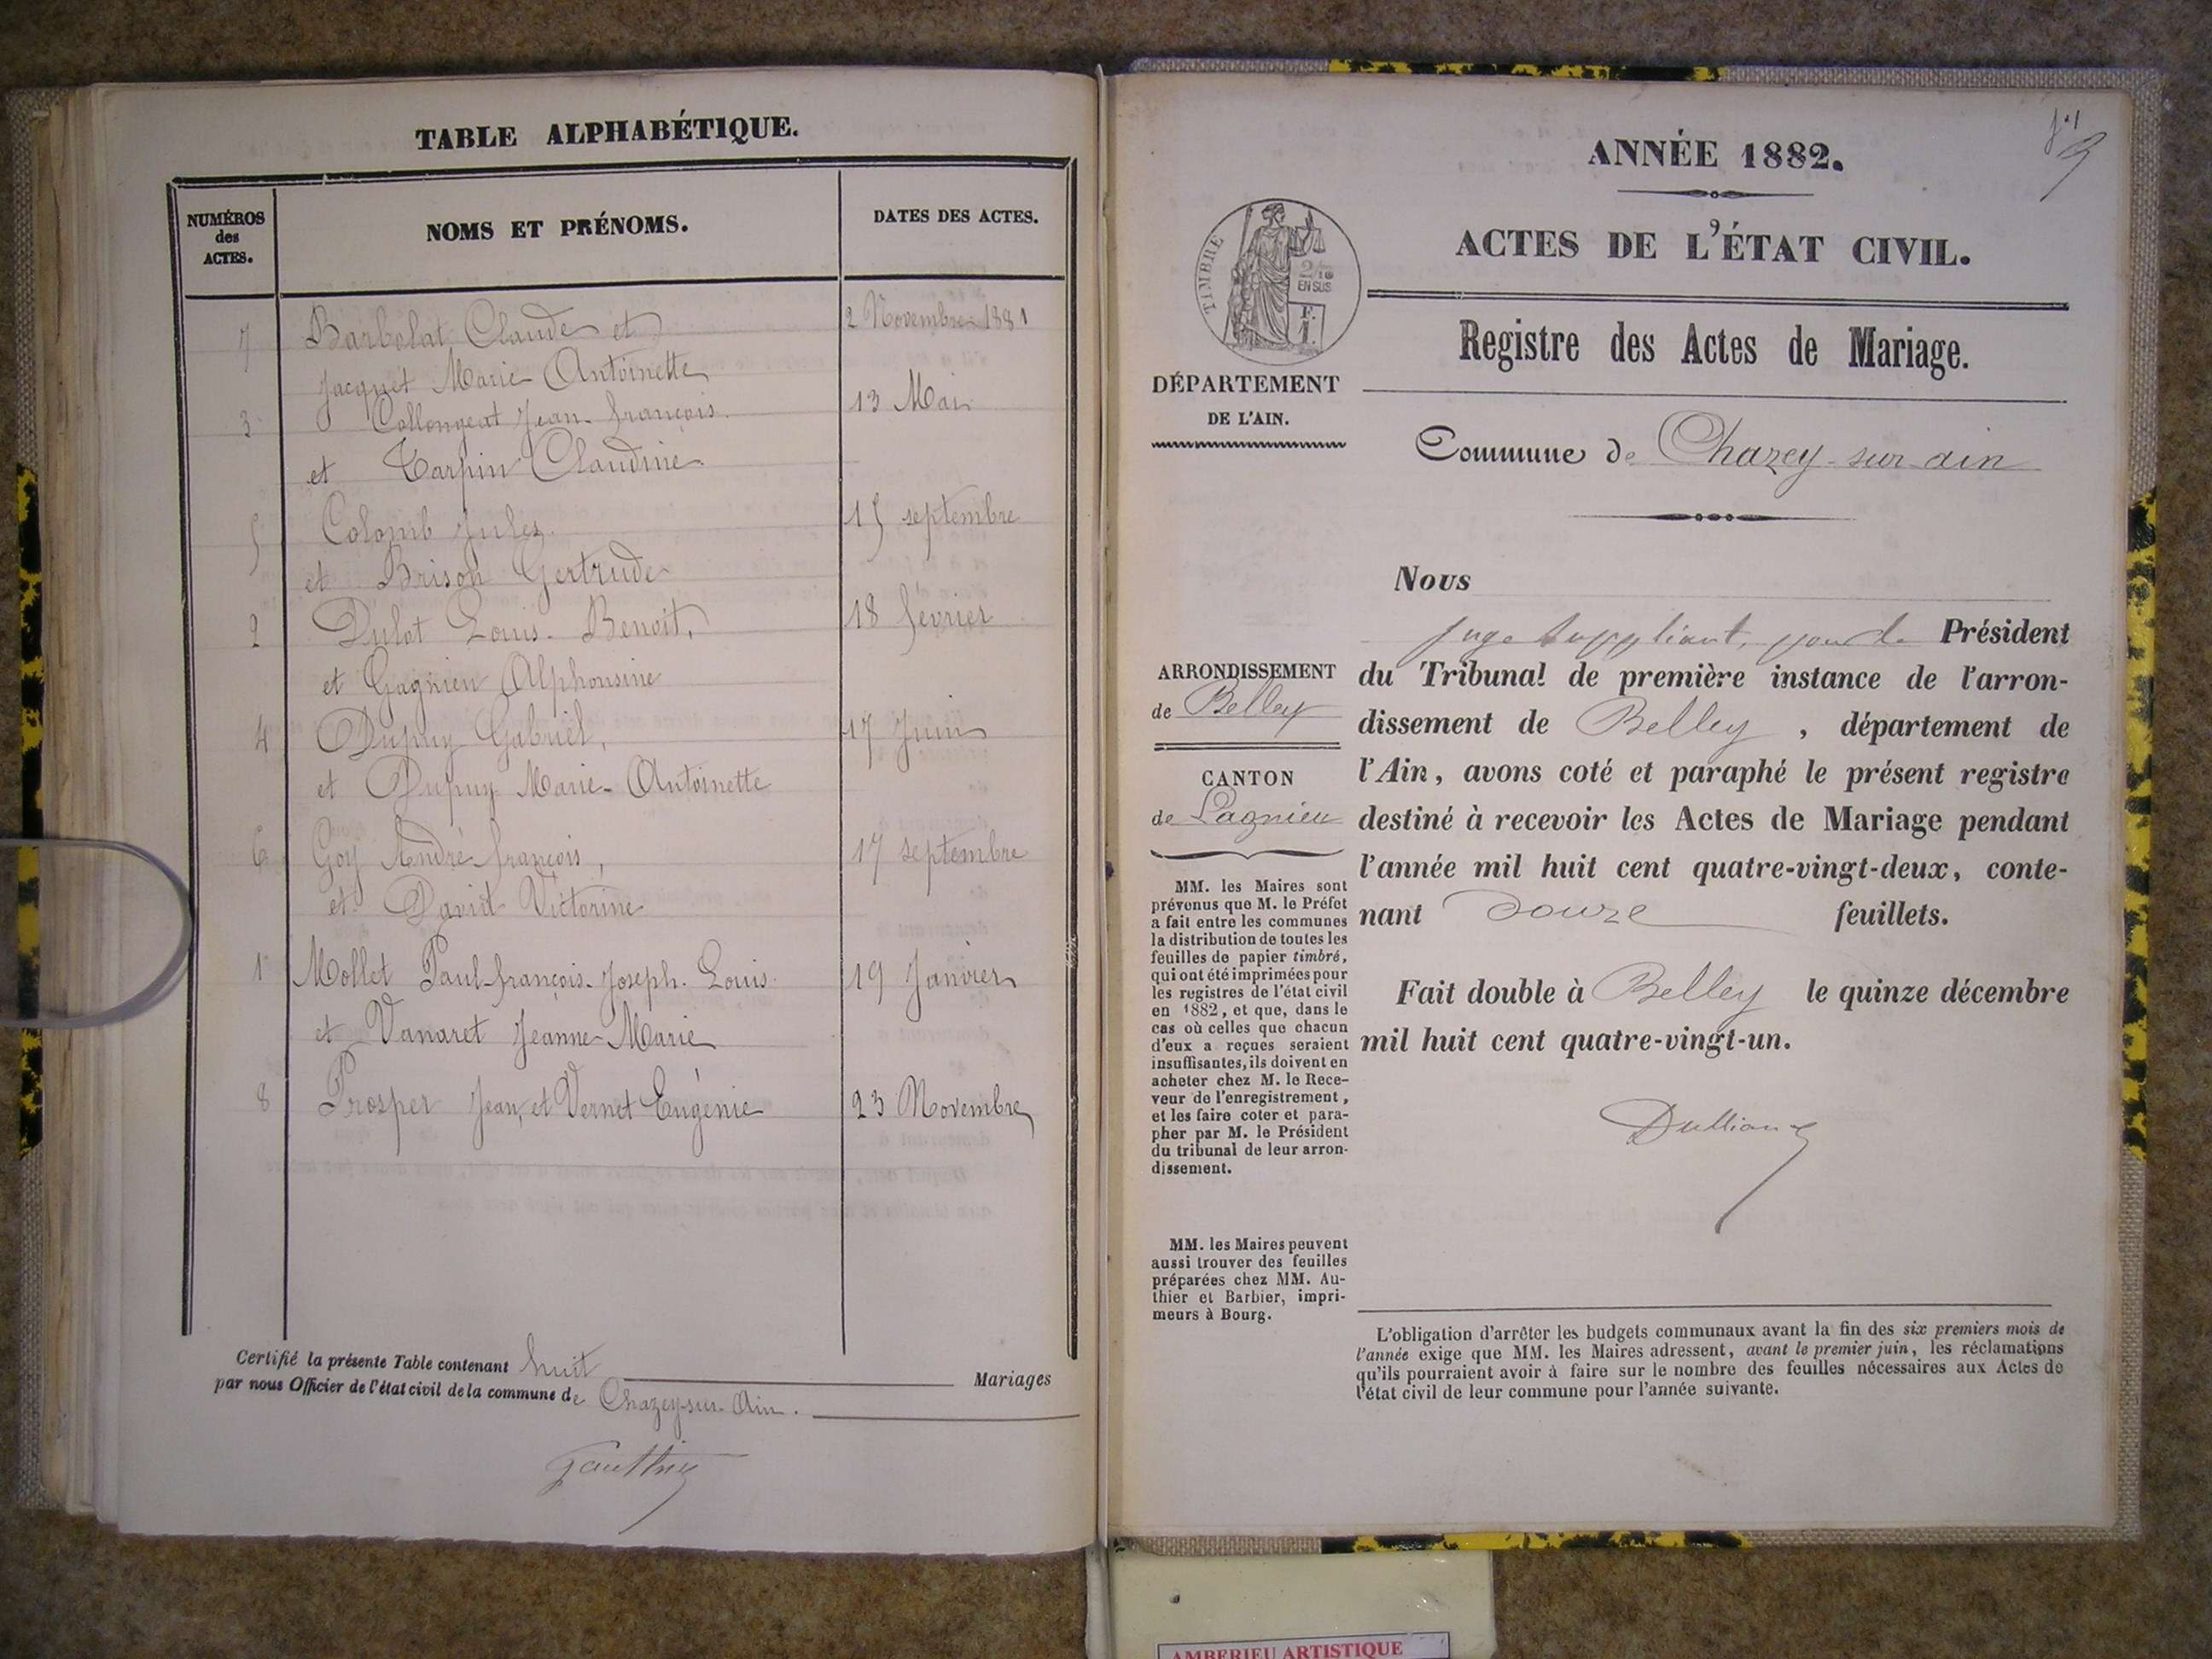 TABLE ALPHABÉTIQUE.
NUMÉROS
des
ACTES.
NOMS ET PRÉNOMS.
DATES DES ACTES.
7 Barbolat Claude et 2 Novembre 1881
Jacquet Marie Antoinette
3 Collongeat Jean-françois. 13 Mai
et Tarpin Claudine
5 Colomb Jules. 15 septembre
et Brison Gertrude
2 Dulot Louis-Benoit, 18 février
et Gagnieu Alphonsine
4 Dupuy Gabriel, 17 Juin
et Dupuy Marie-Antoinette
6 Goy André françois, 17 septembre
et David Victorine
1 Mollet Paul-françois-Joseph-Louis 19 Janvier
et Vanaret Jeanne-Marie
8 Prosper Jean, et Vernet Eugénie 23 Novembre
Certifié la présente Table contenant huit Mariages
par nous Officier de l'état civil de la commune de Chazey-sur-Ain.
Gauthier
ANNÉE 1882.
ACTES DE L'ÉTAT CIVIL.
TIMBRE
2/10
EN SUS
F.
1.
Registre des Actes de Mariage.
DÉPARTEMENT
DE L'AIN.
Commune de Chazey-sur-ain
Nous
juge suppléant, pour le Président
du Tribunal de première instance de l'arron-
dissement de Belley, département de
l'Ain, avons coté et paraphé le présent registre
destiné à recevoir les Actes de Mariage pendant
l'année mil huit cent quatre-vingt-deux, conte-
nant douze feuillets.
Fait double à Belley le quinze décembre
mil huit cent quatre-vingt-un.
ARRONDISSEMENT
de Belley
CANTON
de Lagnieu
MM. les Maires sont
prévenus que M. le Préfet
a fait entre les communes
la distribution de toutes les
feuilles de papier timbré,
qui ont été imprimées pour
les registres de l'état civil
en 1882, et que, dans le
cas où celles que chacun
d'eux a reçues seraient
insuffisantes, ils doivent en
acheter chez M. le Rece-
veur de l'enregistrement,
et les faire coter et para-
pher par M. le Président
du tribunal de leur arron-
dissement.
MM. les Maires peuvent
aussi trouver des feuilles
préparées chez MM. Au-
thier et Barbier, impri-
meurs à Bourg.
L'obligation d'arrêter les budgets communaux avant la fin des six premiers mois de
l'année exige que MM. les Maires adressent, avant le premier juin, les réclamations
qu'ils pourraient avoir à faire sur le nombre des feuilles nécessaires aux Actes de
l'état civil de leur commune pour l'année suivante.
AMBERIEU ARTISTIQUE